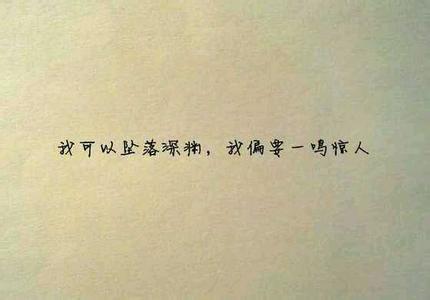 我可以坠落深渊，我偏要一鸣惊人